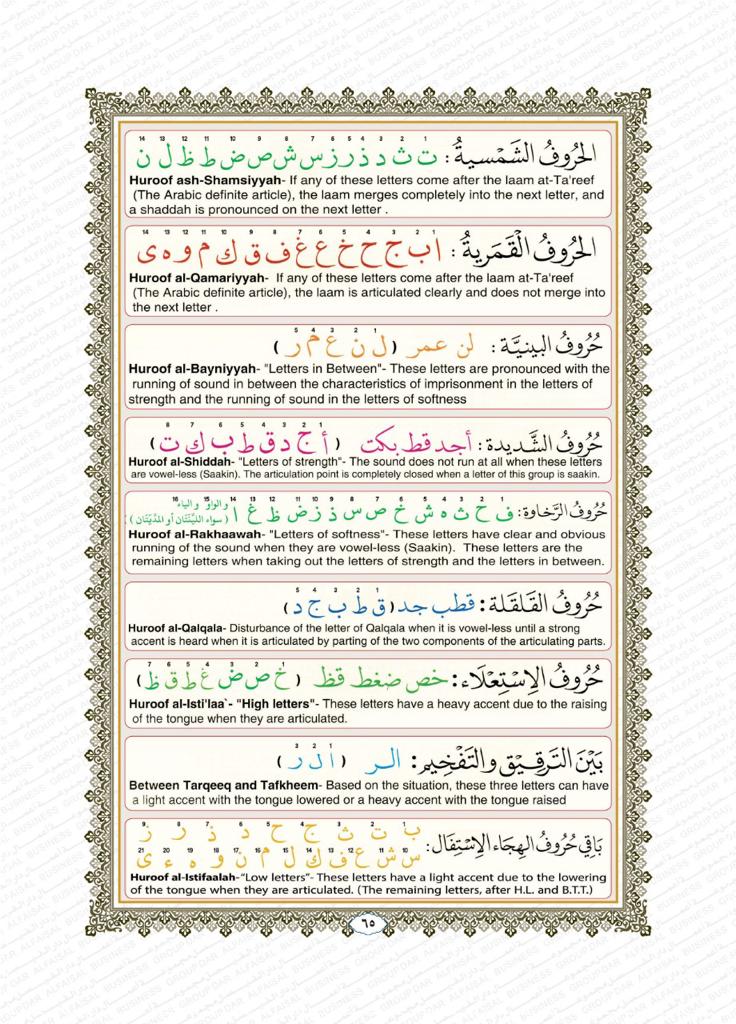 الحُرُوفُ الشَّمْسِيةُ : ت ث د ذ ر ز س ش ص ض ط ظ ل ن
١ ٢ ٣ ٤ ٥ ٦ ٧ ٨ ٩ ١٠ ١١ ١٢ ١٣ ١٤
Huroof ash-Shamsiyyah- If any of these letters come after the laam at-Ta'reef
(The Arabic definite article), the laam merges completely into the next letter, and
a shaddah is pronounced on the next letter .
الحُرُوفُ الْقَمَرِيةُ : ا ب ج ح خ ع غ ف ق ك م و ه ى
Huroof al-Qamariyyah- If any of these letters come after the laam at-Ta'reef
(The Arabic definite article), the laam is articulated clearly and does not merge into
the next letter .
حُرُوفُ البينيَّة : لن عمر ( ل ن ع م ر )
Huroof al-Bayniyyah- "Letters in Between"- These letters are pronounced with the
running of sound in between the characteristics of imprisonment in the letters of
strength and the running of sound in the letters of softness
حُرُوفُ الشَّديدة : أجد قط بكت ( أ ج د ق ط ب ك ت )
Huroof al-Shiddah- "Letters of strength"- The sound does not run at all when these letters
are vowel-less (Saakin). The articulation point is completely closed when a letter of this group is saakin.
حُرُوفُ الرَّخاوة : ف ح ث ه ش خ ص س ذ ز ض ظ غ ا والواو والياء
( سواء اللينتان أو المديتان )
Huroof al-Rakhaawah- "Letters of softness"- These letters have clear and obvious
running of the sound when they are vowel-less (Saakin). These letters are the
remaining letters when taking out the letters of strength and the letters in between.
حُرُوفُ القَلقَلة : قطب جد ( ق ط ب ج د )
Huroof al-Qalqala- Disturbance of the letter of Qalqala when it is vowel-less until a strong
accent is heard when it is articulated by parting of the two components of the articulating parts.
حُرُوفُ الإستِعلَاء : خص ضغط قظ ( خ ص ض غ ط ق ظ )
Huroof al-Isti'laa`- "High letters"- These letters have a heavy accent due to the raising
of the tongue when they are articulated.
بَيْنَ التَرقيْقِ والتَفْخيْم : الـر ( ا ل ر )
Between Tarqeeq and Tafkheem- Based on the situation, these three letters can have
a light accent with the tongue lowered or a heavy accent with the tongue raised
بَاقي حُرُوفُ الهِجَاء الإستِفَال : ب ت ث ج ح د ذ ر ز
س ش ع ف ك ل م ن و ه ء ى
Huroof al-Istifaalah-"Low letters"- These letters have a light accent due to the lowering
of the tongue when they are articulated. (The remaining letters, after H.L. and B.T.T.)
٦٥